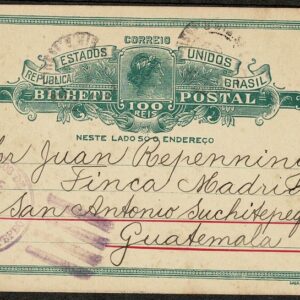 CORREIO
ESTADOS UNIDOS
REPUBLICA BRASIL
BILHETE POSTAL
100
REIS
NESTE LADO SO O ENDEREÇO
Juan Repennin
Finca Madri
San Antonio Suchitepe
Guatemala